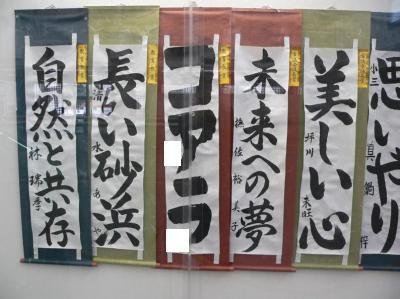 自然と共存
林瑞季
長い砂浜
清水あや
コアラ
未来への夢
佐裕美子
美しい心
坪川未旺
思いやり
小三
真鍋